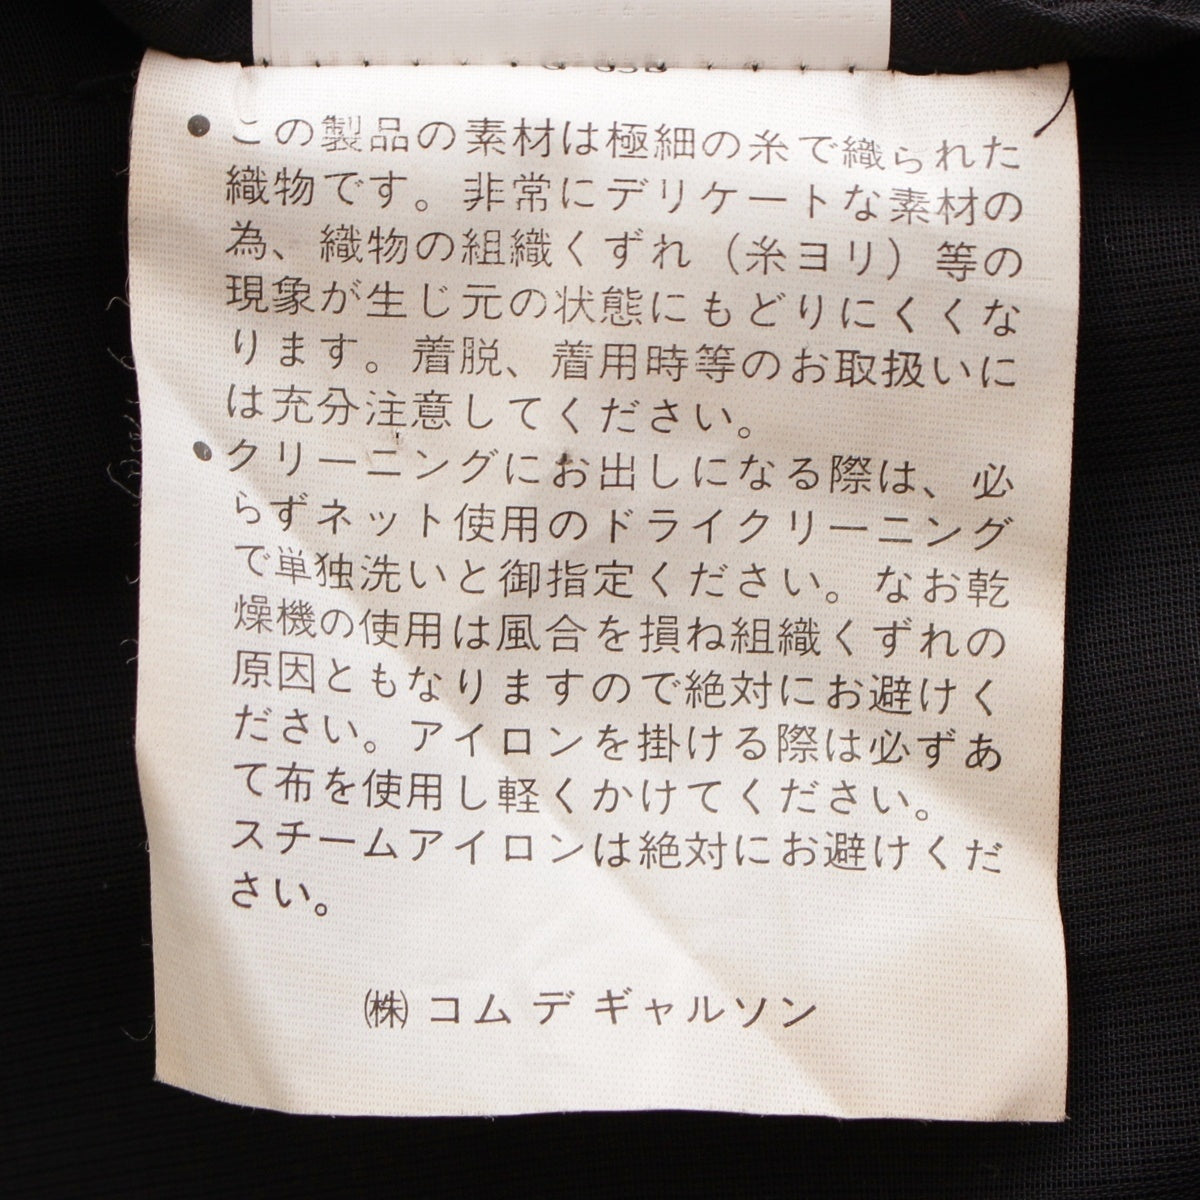 ●この製品の素材は極細の糸で織られた
織物です。非常にデリケートな素材の
為、織物の組織くずれ（糸ヨリ）等の
現象が生じ元の状態にもどりにくくな
ります。着脱、着用時等のお取扱いに
は充分注意してください。
●クリーニングにお出しになる際は、必
らずネット使用のドライクリーニング
で単独洗いと御指定ください。なお乾
燥機の使用は風合を損ね組織くずれの
原因ともなりますので絶対にお避けく
ださい。アイロンを掛ける際は必ずあ
て布を使用し軽くかけてください。
スチームアイロンは絶対にお避けくだ
さい。
㈱ コム デ ギャルソン